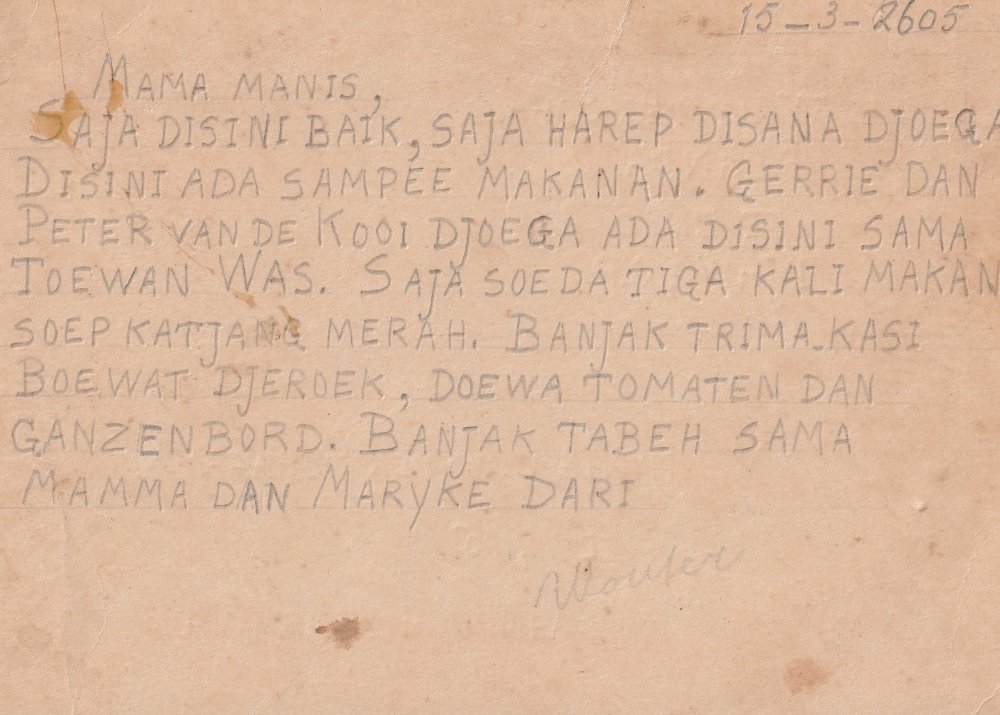 15-3-2605
Mama manis,
Saja disini baik, saja harep disana djoega
Disini ada sampee makanan. Gerrie dan
Peter van de Kooi djoega ada disini sama
Toewan Was. Saja soeda tiga kali makan
soep katjang merah. Banjak trima-kasi
boewat djeroek, doewa tomaten dan
ganzenbord. Banjak tabeh sama
mamma dan Maryke dari
Wouter